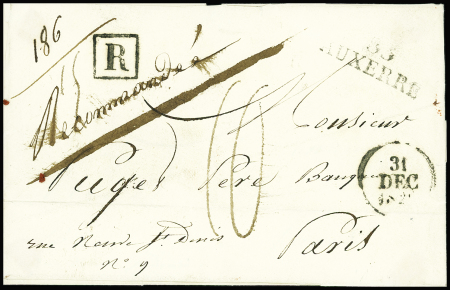 186
R
Recommandée
33
AUXERRE
Monsieur
Puget Père Banquier
10
31
DEC
182
rue Neuve St. Denis
N° 9
Paris